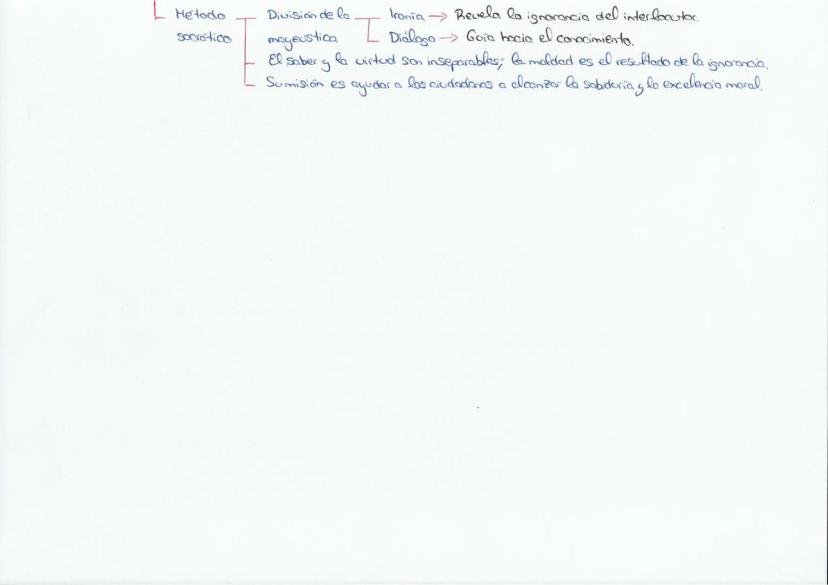 Método División de la Ironía → Revela la ignorancia del interlocutor.
socrático mayeústica Diálogo → Guía hacia el conocimiento.
El saber y la virtud son inseparables; la maldad es el resultado de la ignorancia.
Su misión es ayudar a los ciudadanos a alcanzar la sabiduría y la excelencia moral.